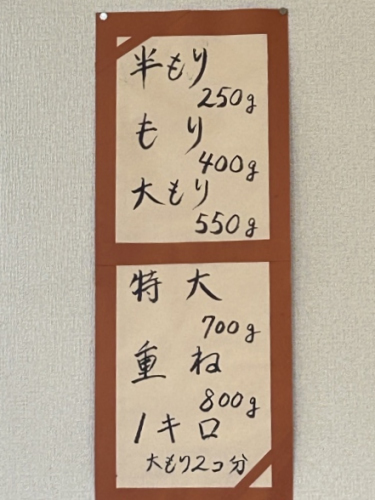 半もり
250g
もり
400g
大もり
550g
特大
700g
重ね
800g
1キロ
大もり2コ分